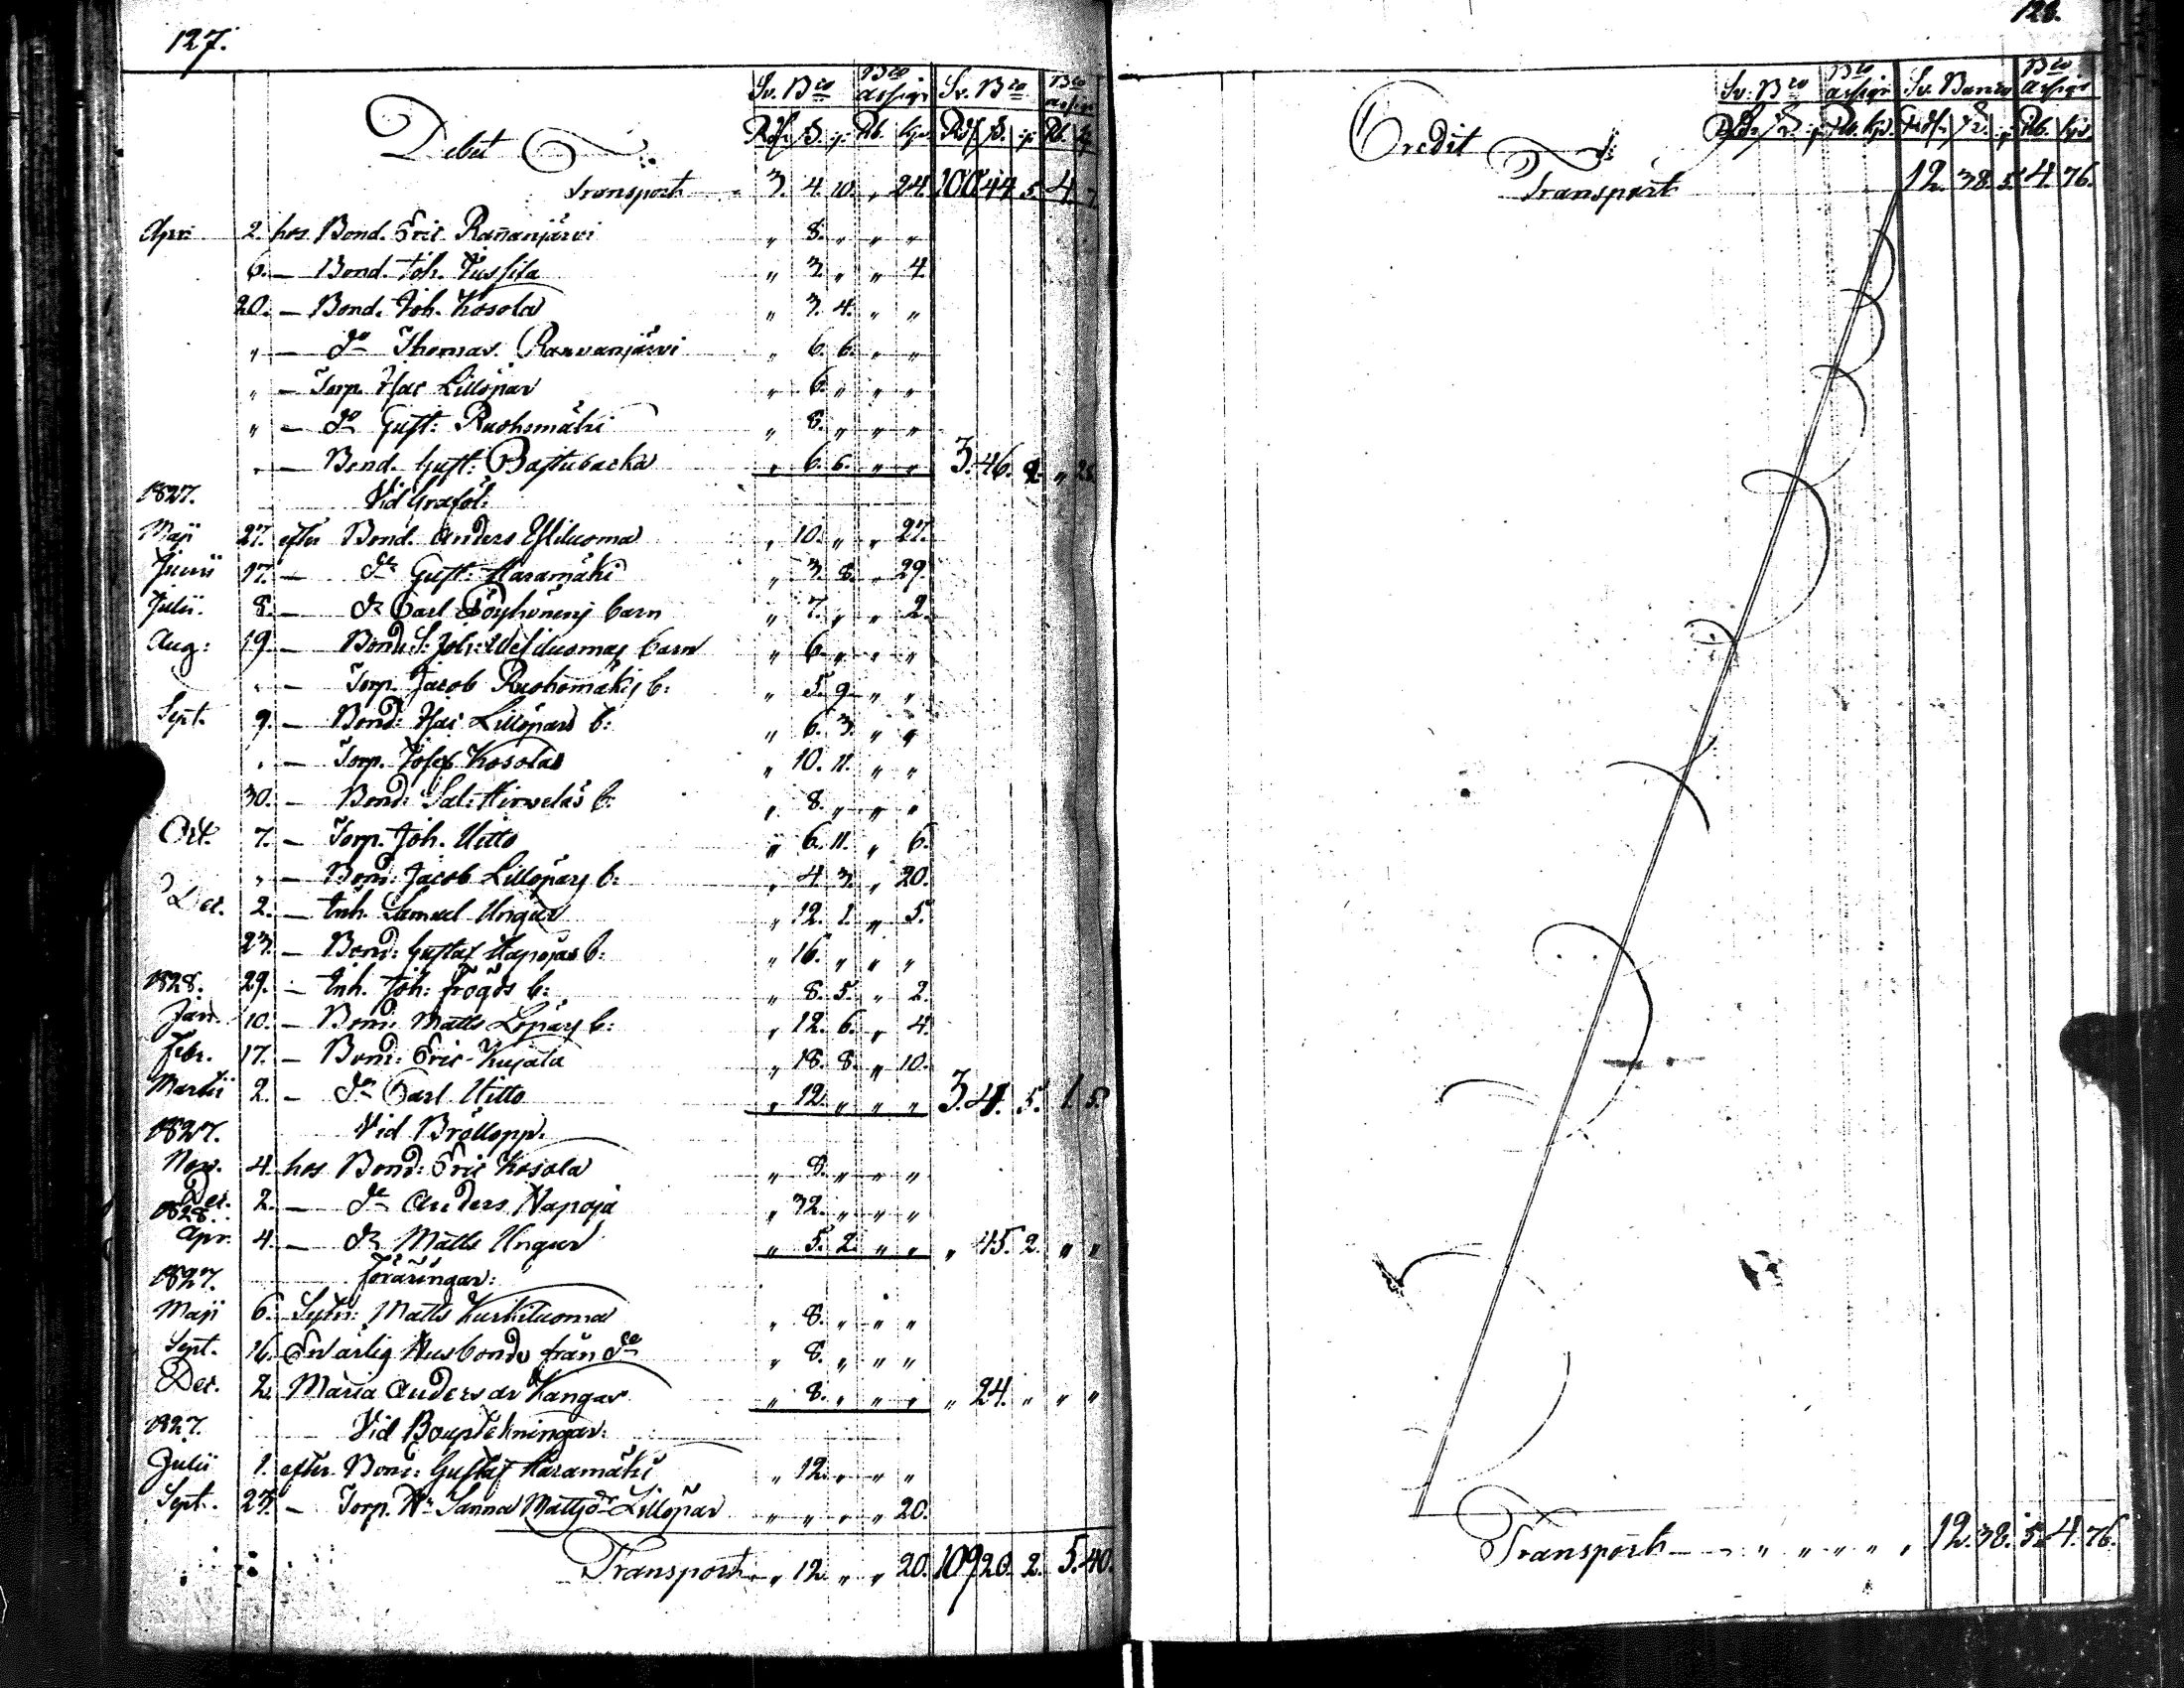 127.
Sv. Bco Bco assign Sv. Bco Bco assign
Debet Rdr ß. rp Rb. kp. Rdr ß. rp Rb. k
Transport 3. 4. 10. „ 24. 100 44. 5. 4. 7
Apr: 2. hos Bond. Eric Rañanjärvi „ 8. „ „ „
6. — Bond. Joh. Jussila „ 3. „ „ 4.
20. — Bond. Joh. Kosola „ 3. 4. „ „
„ — do Thomas Rannanjärvi „ 6. 6. „ „
„ — Torp. Isac Lillöpar „ 6. „ „ „
„ — do Gust: Ruohomäki „ 8. „ „ „
„ — Bond. Gust: Bastubacka „ 6. 6. „ „ 3. 46. 2. „ 28
1827. Vid Grafol:
Maji 27. efter Bond. Anders Ylituoma „ 10. „ „ 27.
Junii 17. — do Gust: Haramäki „ 3. 8. „ 29.
Julii. 8. — do Carl Pöyhönens barn „ 7. „ „ 2.
Aug: 19. — Bond. S: Joh: barn „ 6. „ „ „
„ — Torp. Jacob Ruohomäkis b: „ 5. 9. „ „
Sept. 9. — Bond: Isac Lillöpars b: „ 6. 3. „ „
„ — Torp. Josef Kosolas „ 10. 11. „ „
30. — Bond: Sal: Hirvelas b: „ 8. „ „ „
Oct. 7. — Torp. Joh. Uitto „ 6. 11. „ 6.
„ — Bond: Jacob Lillöpars b: „ 4. 3. „ 20.
Dec. 2. — Inh. Samuel Ungar „ 12. 1. „ 5.
23. — Bond: Gustaf Hapojas b: „ 16. „ „ „
1828. 29. — Inh. Joh: Frögös b: „ 8. 5. „ 2.
Jan. 10. — Bond: Matts Löpars b: „ 12. 6. „ 4.
Febr. 17. — Bond: Eric Kujala „ 18. 8. „ 10.
Martii 2. — do Carl Uitto „ 12. „ „ „ 3. 41. 5. 1. 5.
1827. Vid Bröllopp.
Nov. 4. hos Bond: Eric Kosola „ 8. „ „ „
Dec. 2. — do Anders Napoja „ 32. „ „ „
1828.
Apr. 4. — do Matts Ungar „ 5. 2. „ „ „ 45. 2. „ „
1827. Föräringar:
Maji 6. Sytn: Matts Kurkituoma „ 8. „ „ „
Sept. 16. En ärlig Husbonde från do „ 8. „ „ „
Dec. 2. Maria Andersdr Kangas „ 8. „ „ „ „ 24. „ „ „
1827. Vid Bouptekningar:
Julii 1. efter Bond: Gustaf Haramäki „ 12. „ „ „
Sept. 23. — Torp. Hr Sanna Mattsdr Lillöpar „ „ „ „ 20.
Transport „ 12. „ „ 20. 109 20. 2. 5. 40.
128.
Sv. Bco Bco assign Sv. Banco Bco assign
Credit Rdr ß. rp Rb. kp. Rdr ß. rp Rb. kp.
Transport 12. 38. 5. 4. 76.
Transport „ „ „ „ „ 12. 38. 5. 4. 76.